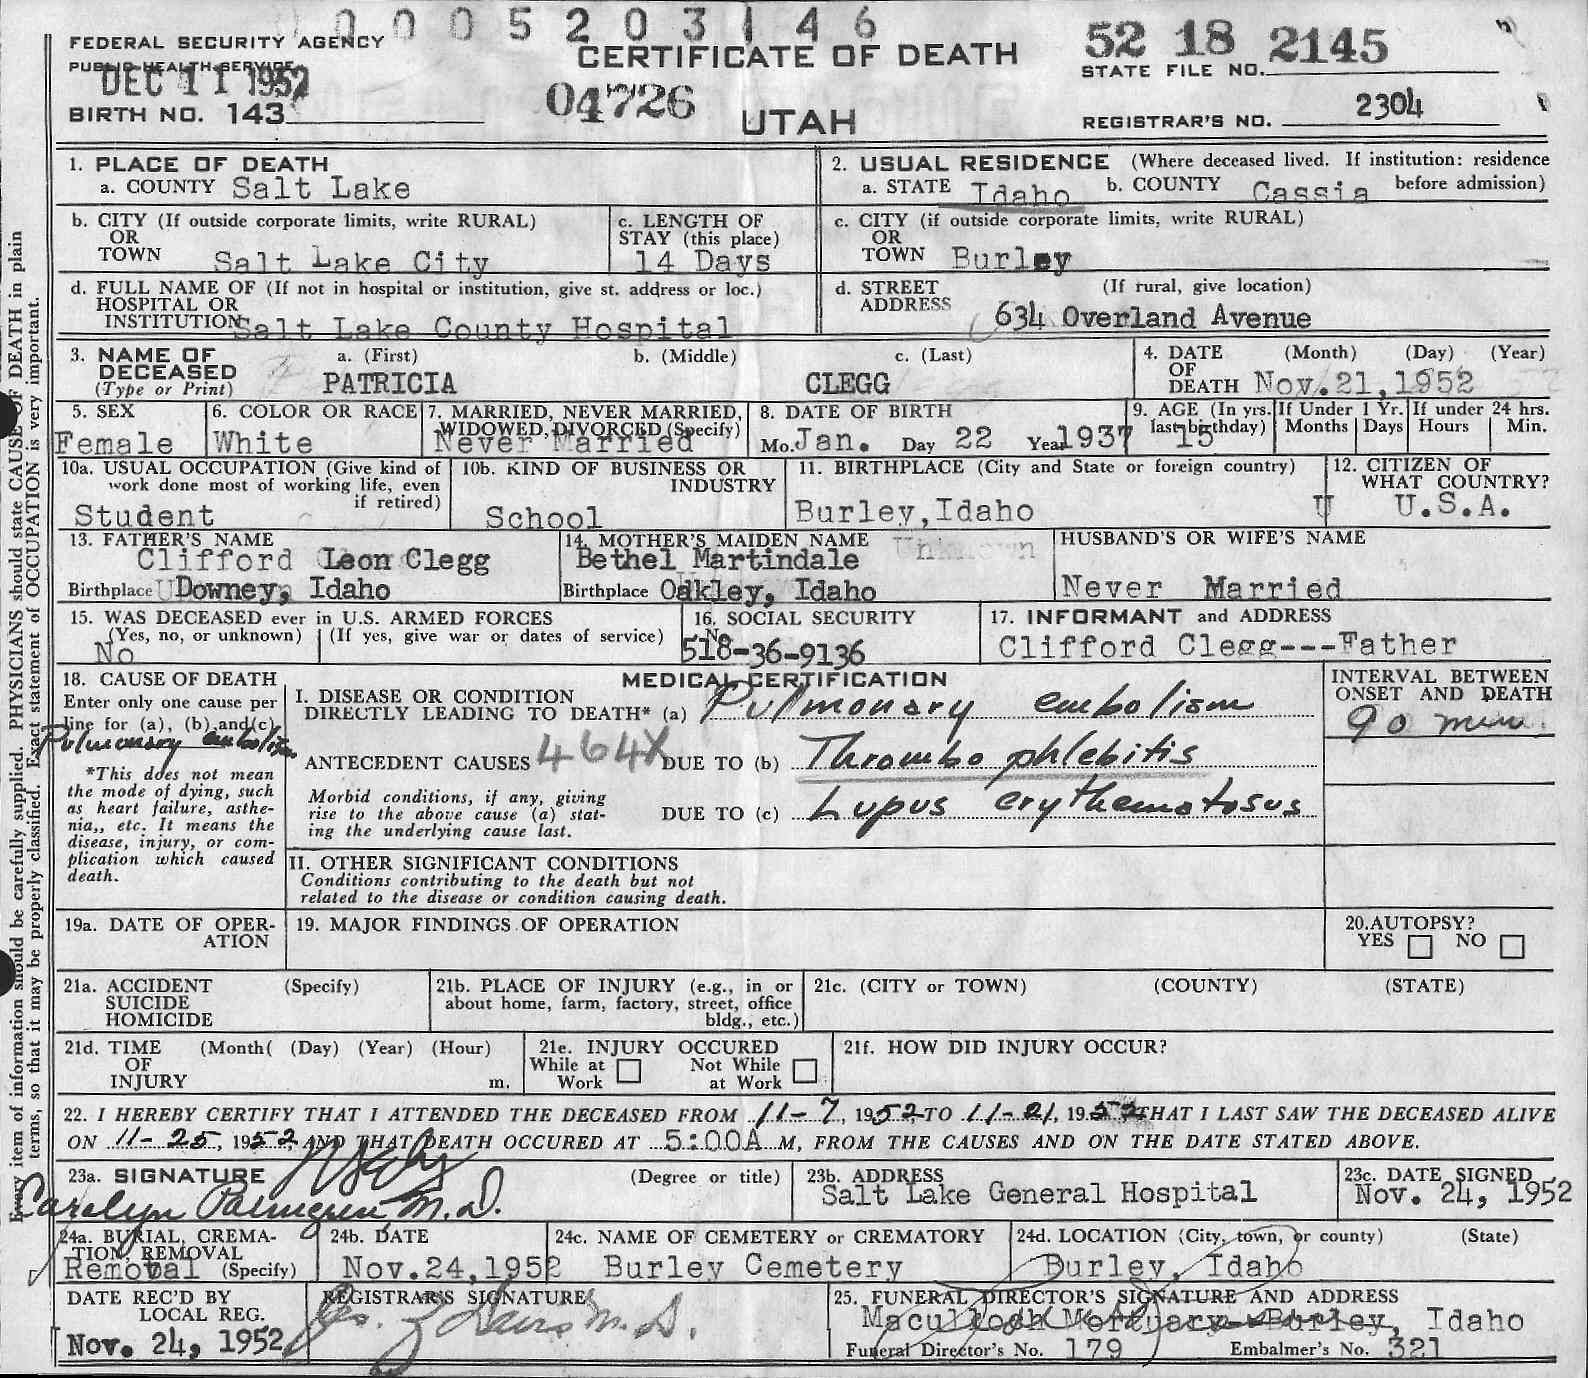 0005203146
FEDERAL SECURITY AGENCY
PUBLIC HEALTH SERVICE
DEC 11 1952
CERTIFICATE OF DEATH
52 18 2145
STATE FILE NO.
BIRTH NO. 143
04726
UTAH
REGISTRAR'S NO. 2304
Every item of information should be carefully supplied. PHYSICIANS should state CAUSE OF DEATH in plain
terms, so that it may be properly classified. Exact statement of OCCUPATION is very important.
1. PLACE OF DEATH
a. COUNTY Salt Lake
2. USUAL RESIDENCE (Where deceased lived. If institution: residence
a. STATE Idaho b. COUNTY Cassia before admission)
b. CITY (If outside corporate limits, write RURAL)
OR
TOWN Salt Lake City
c. LENGTH OF
STAY (this place)
14 Days
c. CITY (if outside corporate limits, write RURAL)
OR
TOWN Burley
d. FULL NAME OF (If not in hospital or institution, give st. address or loc.)
HOSPITAL OR
INSTITUTION Salt Lake County Hospital
d. STREET (If rural, give location)
ADDRESS
634 Overland Avenue
3. NAME OF a. (First) b. (Middle) c. (Last)
DECEASED
(Type or Print) PATRICIA CLEGG
4. DATE (Month) (Day) (Year)
OF
DEATH Nov.21,1952
5. SEX
Female
6. COLOR OR RACE
White
7. MARRIED, NEVER MARRIED,
WIDOWED, DIVORCED (Specify)
Never Married
8. DATE OF BIRTH
Mo. Jan. Day 22 Year 1937
9. AGE (In yrs.
last birthday) 15
If Under 1 Yr.
Months Days
If under 24 hrs.
Hours Min.
10a. USUAL OCCUPATION (Give kind of
work done most of working life, even
if retired)
Student
10b. KIND OF BUSINESS OR
INDUSTRY
School
11. BIRTHPLACE (City and State or foreign country)
Burley,Idaho
12. CITIZEN OF
WHAT COUNTRY?
U U.S.A.
13. FATHER'S NAME
Clifford Leon Clegg
Birthplace Downey, Idaho
14. MOTHER'S MAIDEN NAME Unknown
Bethel Martindale
Birthplace Oakley, Idaho
HUSBAND'S OR WIFE'S NAME
Never Married
15. WAS DECEASED ever in U.S. ARMED FORCES
(Yes, no, or unknown) (If yes, give war or dates of service)
No
16. SOCIAL SECURITY
No.
518-36-9136
17. INFORMANT and ADDRESS
Clifford Clegg---Father
18. CAUSE OF DEATH
Enter only one cause per
line for (a), (b) and (c)
Pulmonary embolism
*This does not mean
the mode of dying, such
as heart failure, asthe-
nia,, etc. It means the
disease, injury, or com-
plication which caused
death.
MEDICAL CERTIFICATION
I. DISEASE OR CONDITION
DIRECTLY LEADING TO DEATH* (a) Pulmonary embolism
ANTECEDENT CAUSES 464X DUE TO (b) Thrombo phlebitis
Morbid conditions, if any, giving
rise to the above cause (a) stat-
ing the underlying cause last.
DUE TO (c) Lupus erythematosus
INTERVAL BETWEEN
ONSET AND DEATH
90 min.
II. OTHER SIGNIFICANT CONDITIONS
Conditions contributing to the death but not
related to the disease or condition causing death.
19a. DATE OF OPER-
ATION
19. MAJOR FINDINGS OF OPERATION
20. AUTOPSY?
YES NO
21a. ACCIDENT (Specify)
SUICIDE
HOMICIDE
21b. PLACE OF INJURY (e.g., in or
about home, farm, factory, street, office
bldg., etc.)
21c. (CITY or TOWN) (COUNTY) (STATE)
21d. TIME (Month( (Day) (Year) (Hour)
OF
INJURY m.
21e. INJURY OCCURED
While at Not While
Work at Work
21f. HOW DID INJURY OCCUR?
22. I HEREBY CERTIFY THAT I ATTENDED THE DECEASED FROM 11-7, 1952, TO 11-21, 1952 THAT I LAST SAW THE DECEASED ALIVE
ON 11-25, 1952, AND THAT DEATH OCCURED AT 5:00A M, FROM THE CAUSES AND ON THE DATE STATED ABOVE.
23a. SIGNATURE (Degree or title)
Carolyn Palmgren M.D.
23b. ADDRESS
Salt Lake General Hospital
23c. DATE SIGNED
Nov. 24, 1952
24a. BURIAL, CREMA-
TION, REMOVAL
Removal (Specify)
24b. DATE
Nov.24,1952
24c. NAME OF CEMETERY or CREMATORY
Burley Cemetery
24d. LOCATION (City, town, or county) (State)
Burley, Idaho
DATE REC'D BY
LOCAL REG.
Nov. 24, 1952
REGISTRAR'S SIGNATURE
M.D.
25. FUNERAL DIRECTOR'S SIGNATURE AND ADDRESS
Maculloch Mortuary--Burley, Idaho
Funeral Director's No. 179 Embalmer's No. 321